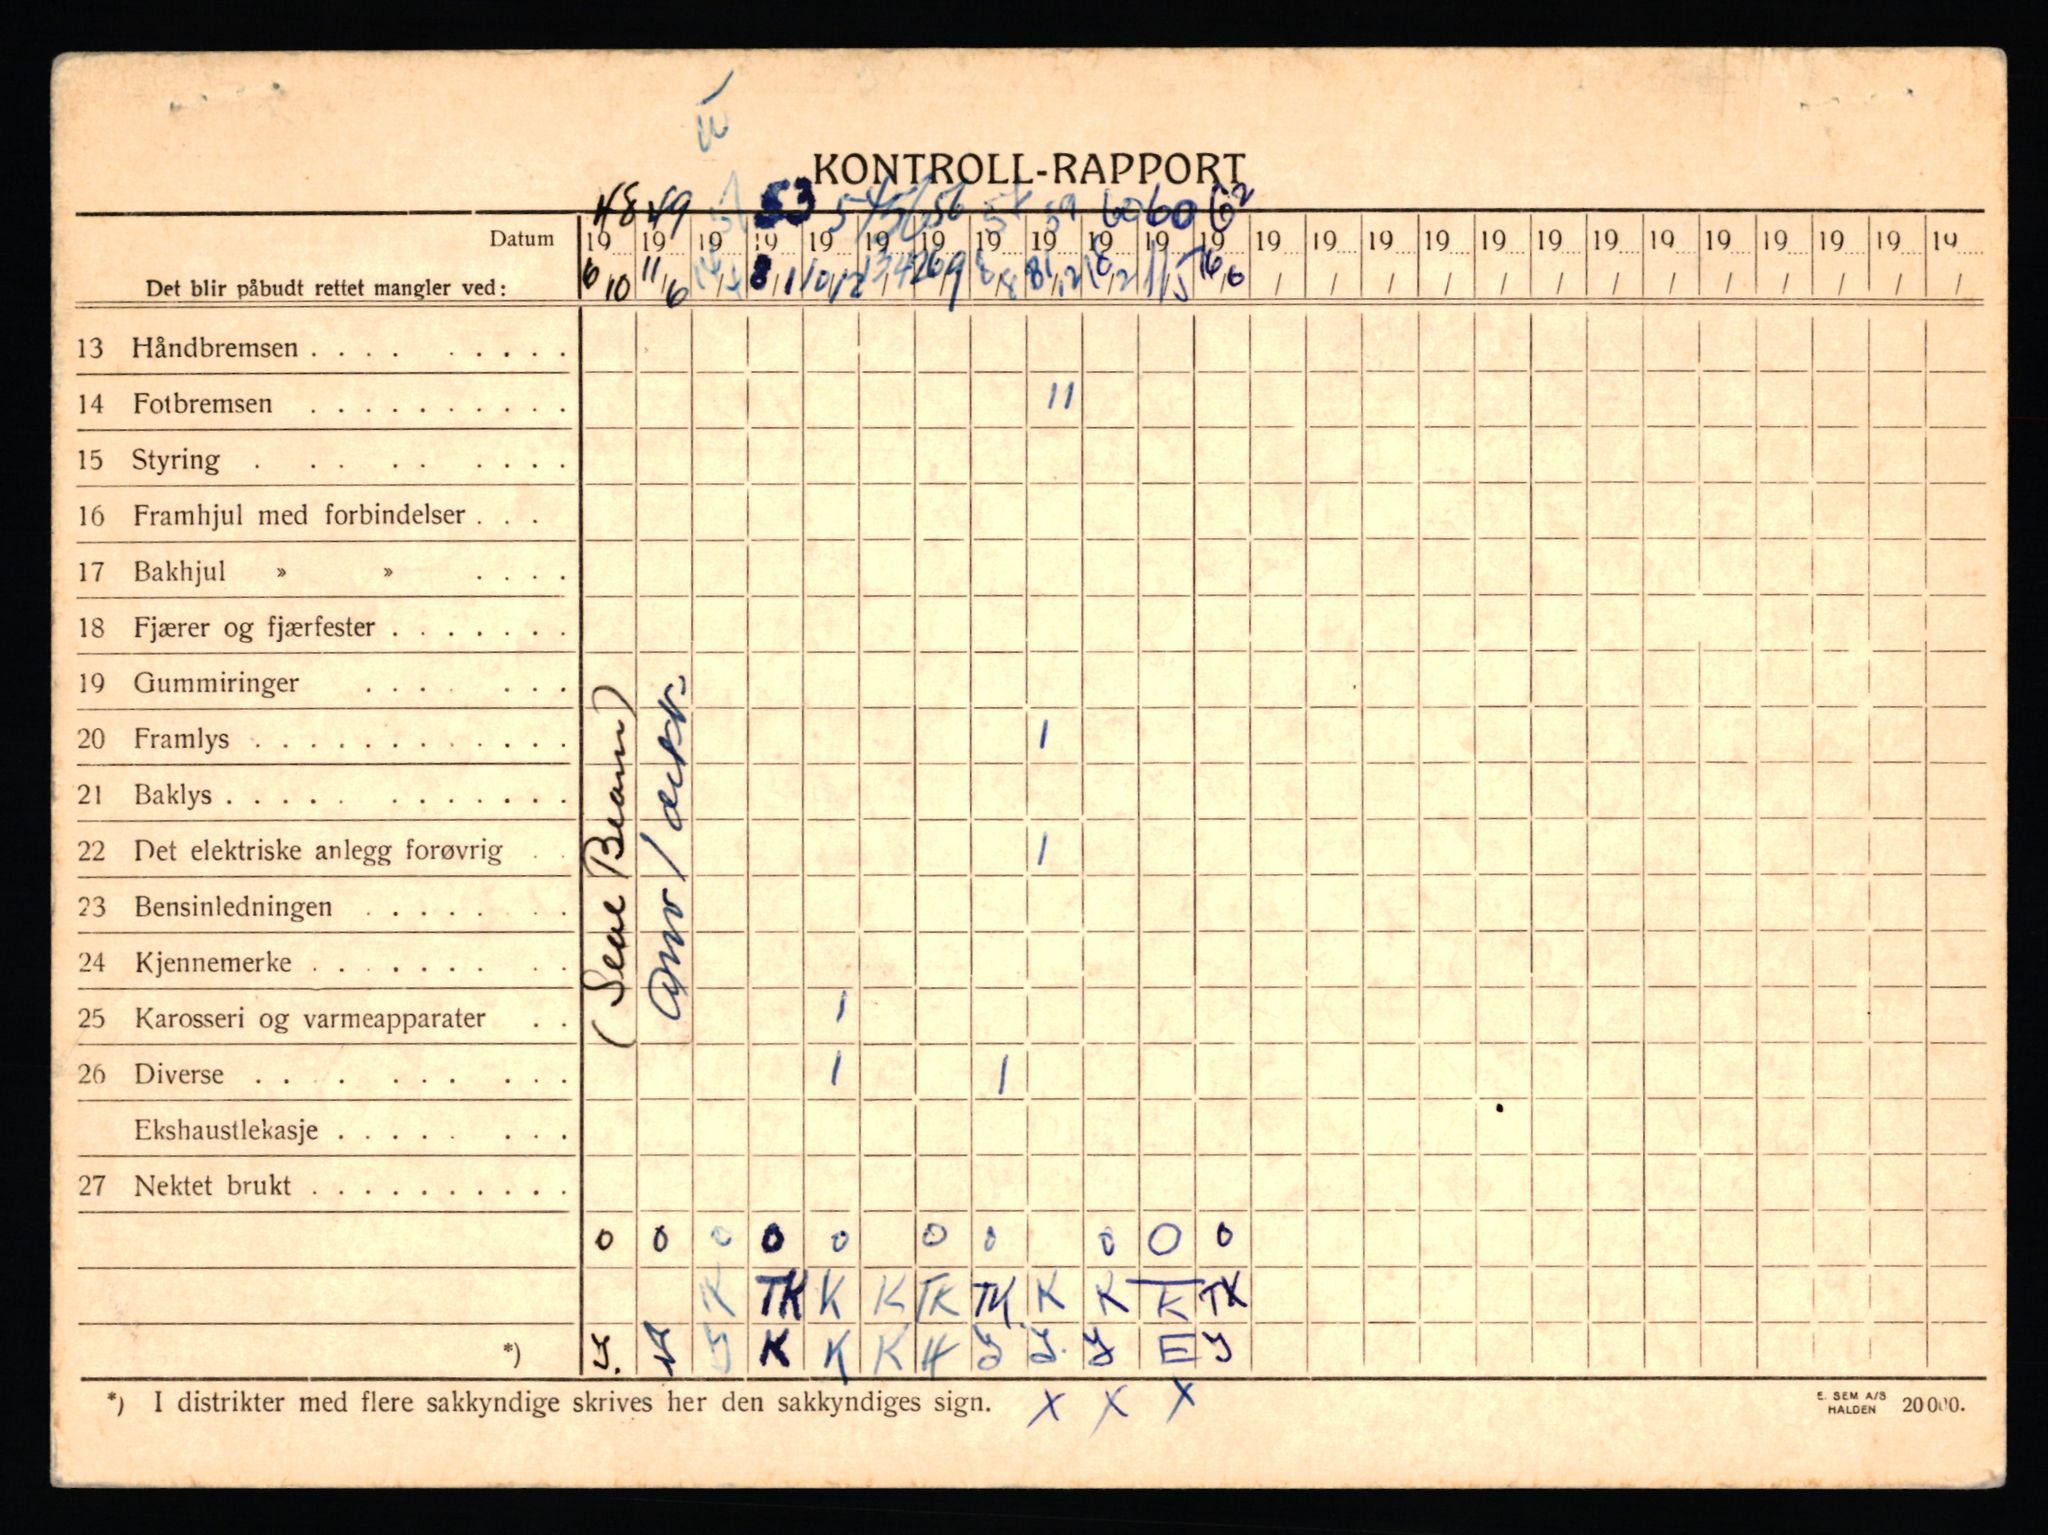 KONTROLL-RAPPORT
48 49 51 53 54 56 56 59 60 60 62
Datum 19 19 19 19 19 19 19 19 19 19 19 19 19 19 19 19 19 19 19 19 19 19 19 19 19
Det blir påbudt rettet mangler ved: 6/10 11/6 8/1 10/12 13/4 26/9 8/8 8/12 18/2 11/5 16/6 / / / / / / / / / / / / /
13 Håndbremsen . . . . . . . . .
14 Fotbremsen . . . . . . . . . . 11
15 Styring . . . . . . . . .
16 Framhjul med forbindelser . . .
17 Bakhjul » » . . . .
18 Fjærer og fjærfester . . . . . . .
19 Gummiringer . . . . . . .
20 Framlys . . . . . . . . . . . . 1
21 Baklys . . . . . . . . . . . .
22 Det elektriske anlegg forøvrig . . 1
23 Bensinledningen . . . . . . .
24 Kjennemerke . . . . . . . .
25 Karosseri og varmeapparater . . 1
26 Diverse . . . . . . . . . 1 1
Ekshaustlekasje . . . . . . . .
27 Nektet brukt . . . . . . . . . .
(Seal Beam)
0 0 0 0 0 0 0 0 0 0
K TK K K TK TK K K K TK
*) K K K H E
*) I distrikter med flere sakkyndige skrives her den sakkyndiges sign. X X X
E. SEM A/S
HALDEN 20000.